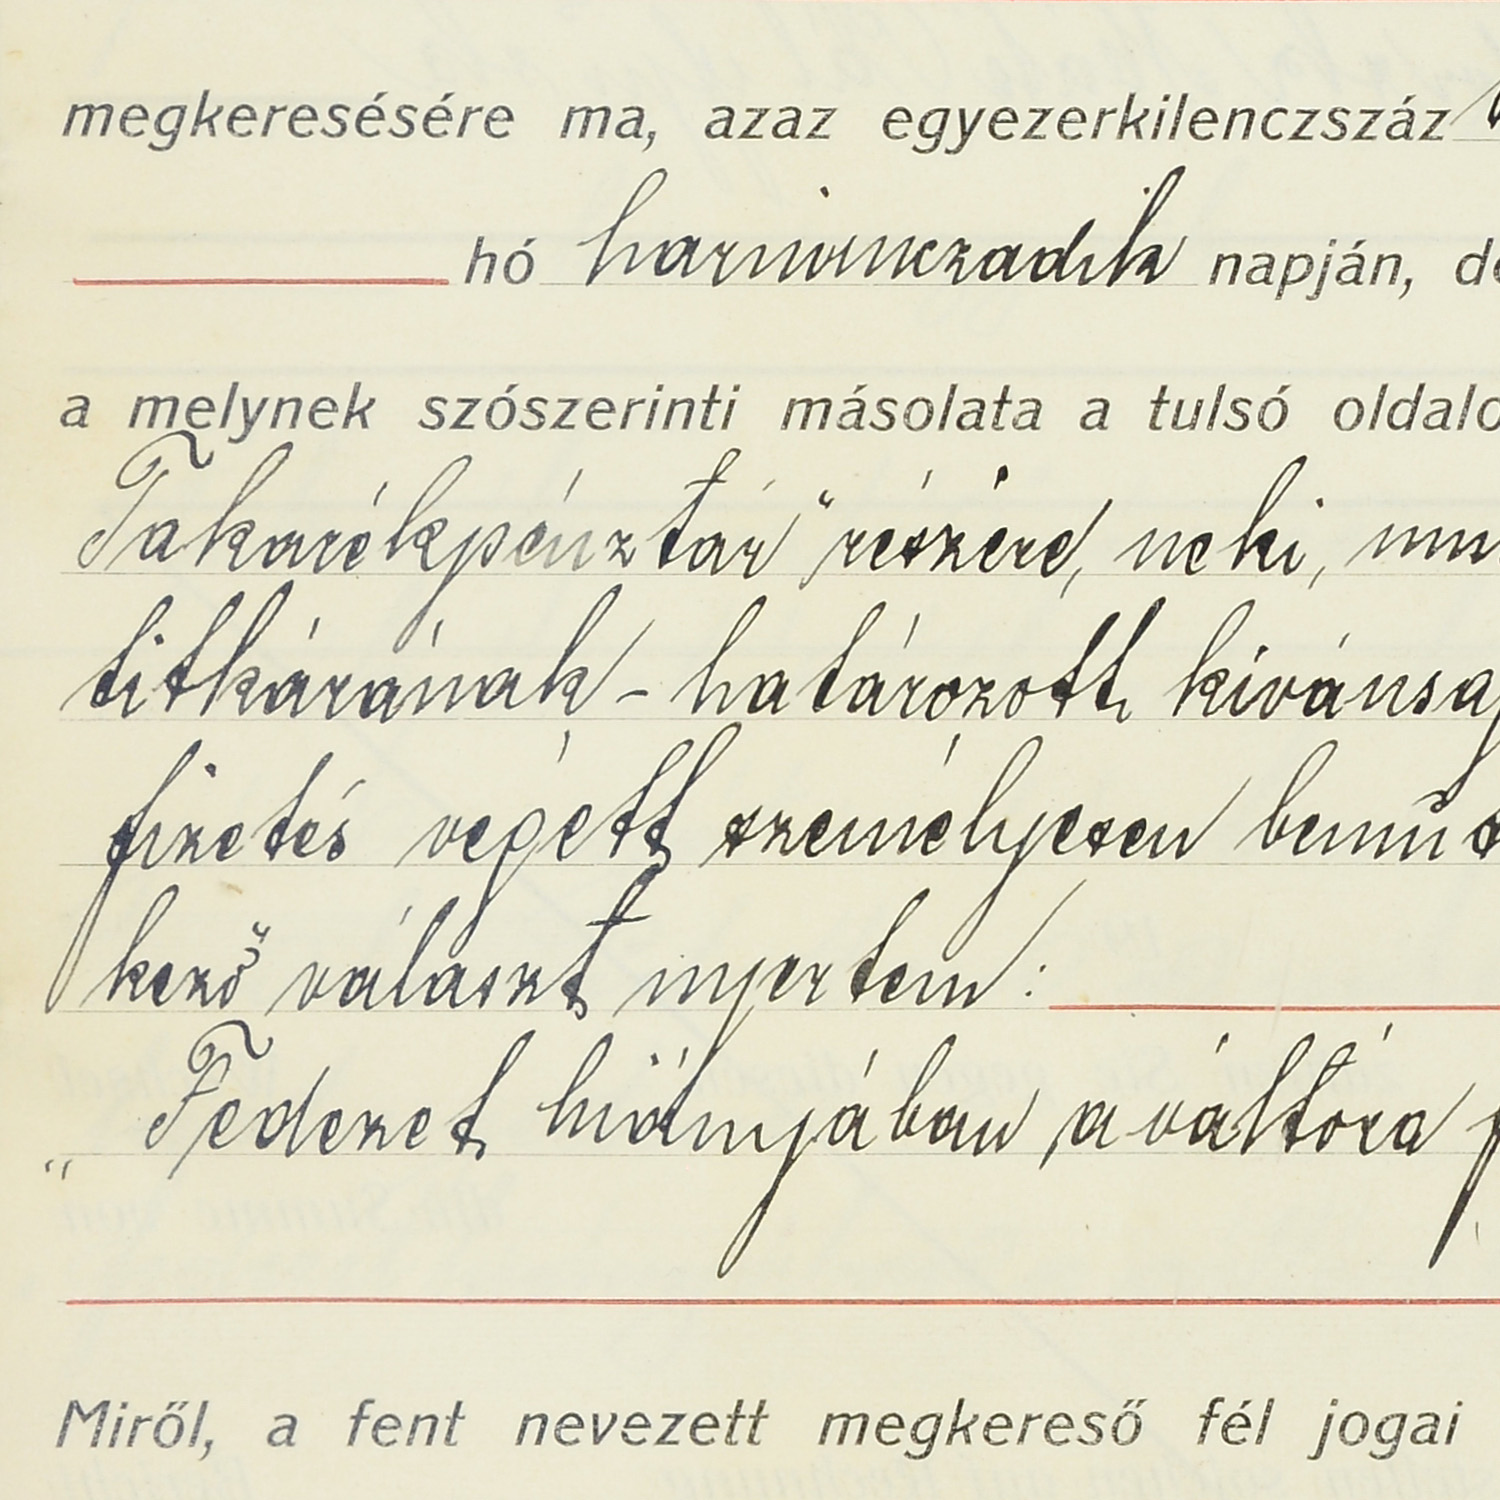 megkeresésére ma, azaz egyezerkilenczszáz
hó harminczadik napján, de
a melynek szószerinti másolata a tulsó oldalo
Takarékpénztár" részére, neki,
titkárának - határozott kivánsag
fizetés végett személyesen bemut
kező" választ nyertem:
„Fedezet hiányában a váltóra f
Miről, a fent nevezett megkereső fél jogai